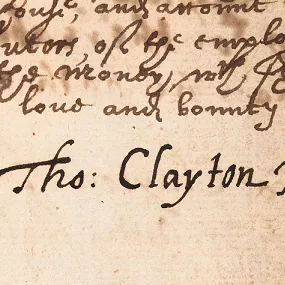 house, and account
utors of the emplo
the money, wth
love and bounty
Tho: Clayton